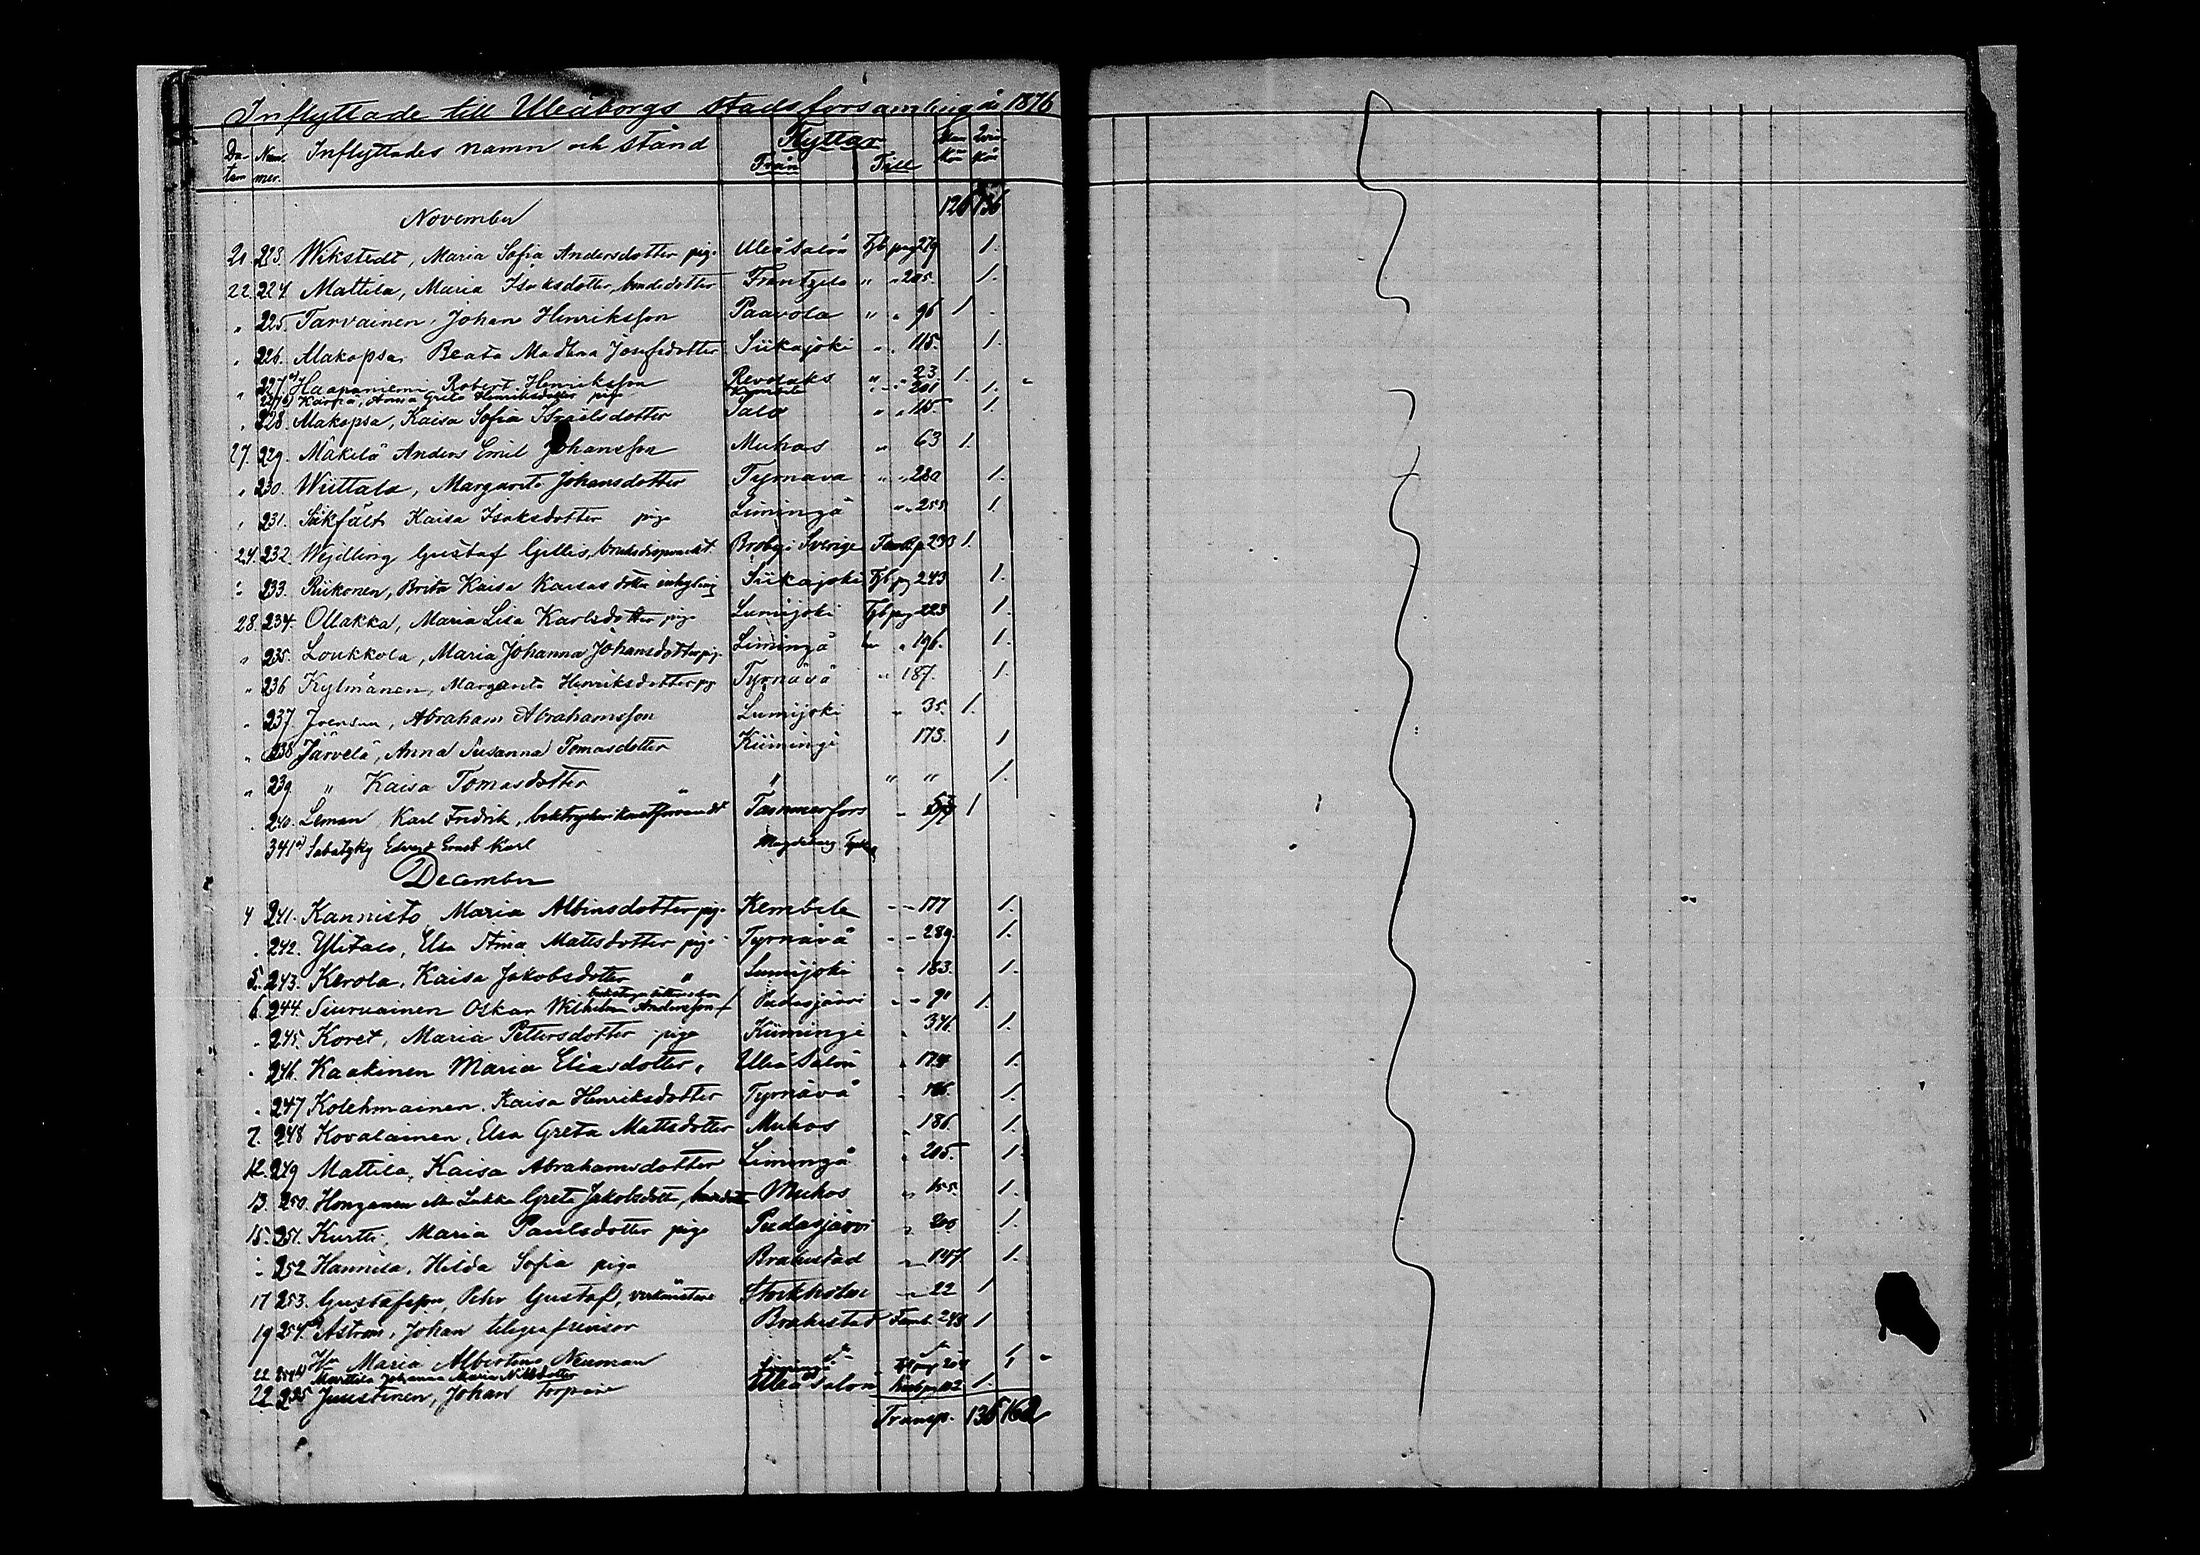 Inflyttade till Uleåborgs stadsförsamling år 1876
Da- Num- Inflyttades namn och stånd Flyttar Man Qvin-
tum mer. Från Till kön kön
November 126 136
21. 223. Wikstedt, Maria Sofia Andersdotter pig. Uleå Salo Tjb pag 279 1.
22. 224 Mattila, Maria Isaksdotter, bondedotter Frantzila " " 205. 1.
" 225. Tarvainen, Johan Henriksson Paavola " " 96 1.
" 226. Makopsa, Beata Madlena Josefsdotter Siikajoki " " 115. 1.
" 227 a) Haapaniemi, Robert Henriksson Revolaks " " 23. 1.
227 b) Anna Greta Henriksdotter pig Kembele " " 201 1.
" 228. Makopsa, Kaisa Sofia Israelsdotter Salo " " 115 1.
27. 229. Mäkelä Anders Emil Johansson Muhos " 63 1.
" 230. Wiittala, Margareta Johansdotter Tyrnävä " " 280 1.
" 231. Kaisa Isaksdotter piga Limingo " " 255 1.
24. 232. Wejdling Gustaf Gillis, bruksdisponent Broby i Sverige 230 1.
" 233. Riikonen, Brita Kaisa Kaisasdotter inhysing Siikajoki Tjb pg 243 1.
28. 234. Ollakka, Maria Lisa Karlsdotter pig Lumijoki Tjb pag 223 1.
" 235. Loukkola, Maria Johanna Johansdotter pig. Limingo " 196. 1.
" 236 Kylmänen, Margareta Henriksdotter pg Tyrnävä " 187. 1.
" 237. Abraham Abrahamsson Lumijoki " 35. 1.
" 238 Järvelä, Anna Susanna Tomasdotter Kiimingi 173. 1
" 239 " Kaisa Tomasdotter " " " 1.
" 240. Leman, Karl Fredrik, Tammerfors " 1
341 a) Sabatzky Edvard Ernst Karl Magdeburg
December
4 241. Kannisto Maria Albinsdotter pig. Kembele " " 177 1.
" 242. Ylitalo, Elsa Stina Mattsdotter pig. Tyrnävä " " 289. 1.
5. 243. Kerola, Kaisa Jakobsdotter " Lumijoki " 183. 1.
6. 244. Siuruainen Oskar Wilhelm Andersson Pudasjärvi " " 91 1.
" 245. Koret, Maria Pettersdotter piga Kiimingi " 346. 1.
" 246. Kaakinen Maria Eliasdotter, Uleå Salo " 174 1.
" 247 Kolehmainen, Kaisa Henriksdotter Tyrnävä " 186. 1.
7. 248 Kovalainen, Elsa Greta Mattsdotter Muhos " 186. 1.
12. 249 Mattila, Kaisa Abrahamsdotter Limingo " 205. 1.
13. 250. Honganen Lakka Greta Jakobsdotter, Muhos " 155. 1.
15. 251. Kurtti, Maria Paulsdotter piga Pudasjärvi " 200 1.
" 252 Hannila, Hilda Sofia piga Brahestad " 147 1.
17 253. Gustafsson, Petter Gustaf, verkmästare Stockholm " 22 1
19 254 a) Åström, Johan telegrafrevisor Brahestad Famb. 248 1
Hu Maria Albertina Neuman 1.
22 254 b) Marttila Johanna Maria Nilsdotter Limingo Tjb pag 204 1
22 255 Juustinen, Johan Uleå Salo 1.
Transp. 136 162